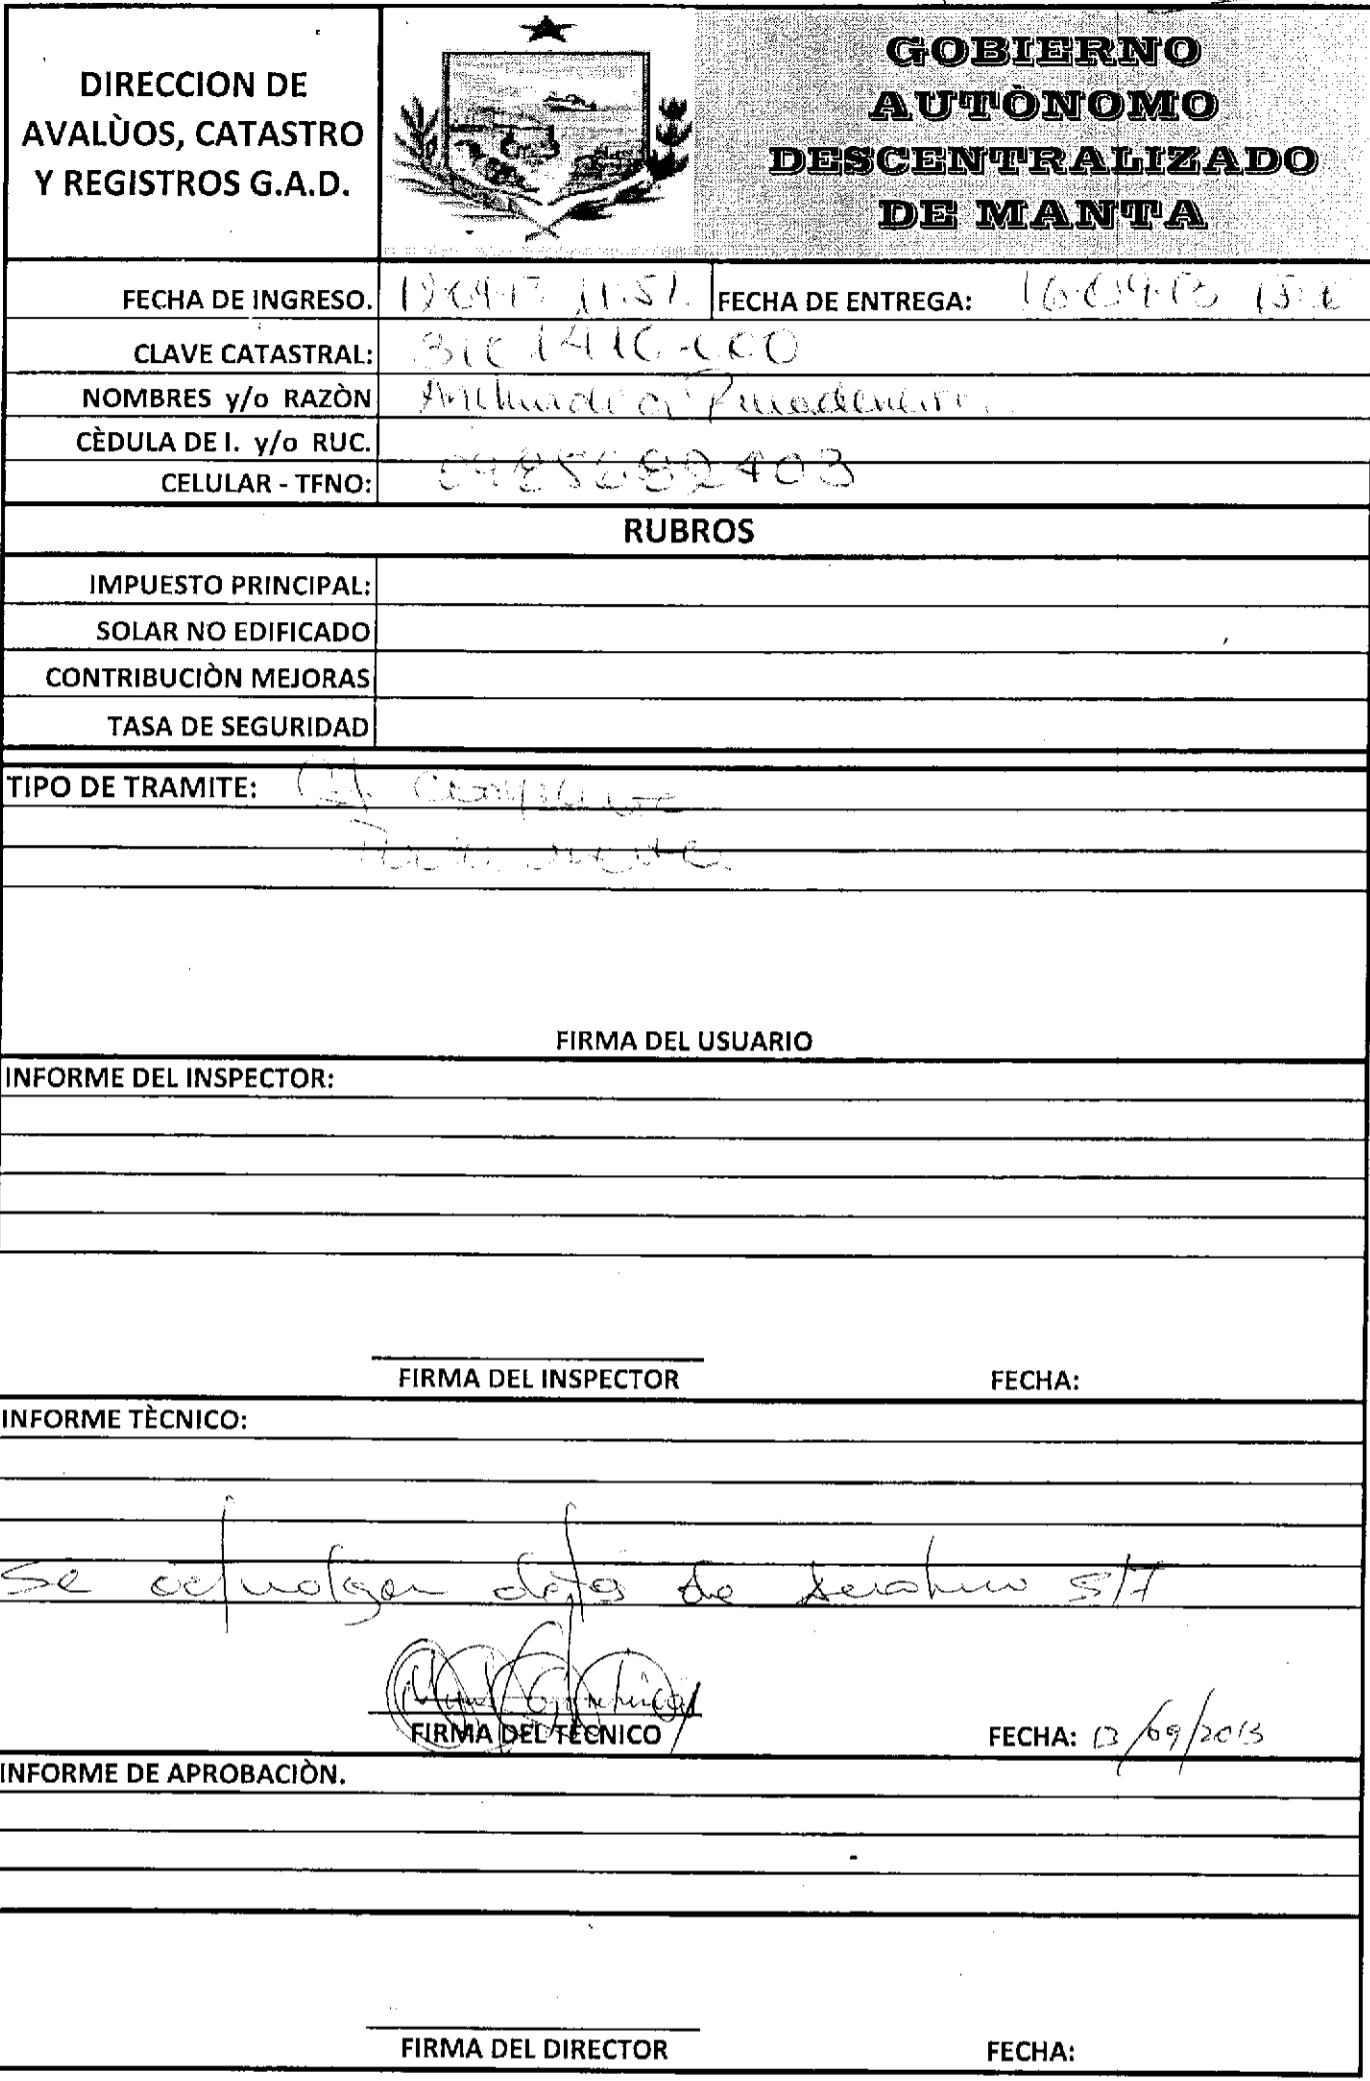 DIRECCION DE
AVALÙOS, CATASTRO
Y REGISTROS G.A.D.
GOBIERNO
AUTÒNOMO
DESCENTRALIZADO
DE MANTA
FECHA DE INGRESO.
FECHA DE ENTREGA:
CLAVE CATASTRAL:
NOMBRES y/o RAZÒN
CÈDULA DE I. y/o RUC.
CELULAR - TFNO: 0985682403
RUBROS
IMPUESTO PRINCIPAL:
SOLAR NO EDIFICADO
CONTRIBUCIÒN MEJORAS
TASA DE SEGURIDAD
TIPO DE TRAMITE:
FIRMA DEL USUARIO
INFORME DEL INSPECTOR:
FIRMA DEL INSPECTOR FECHA:
INFORME TÈCNICO:
se de
FIRMA DEL TÈCNICO FECHA: 13/09/2013
INFORME DE APROBACIÒN.
FIRMA DEL DIRECTOR FECHA: